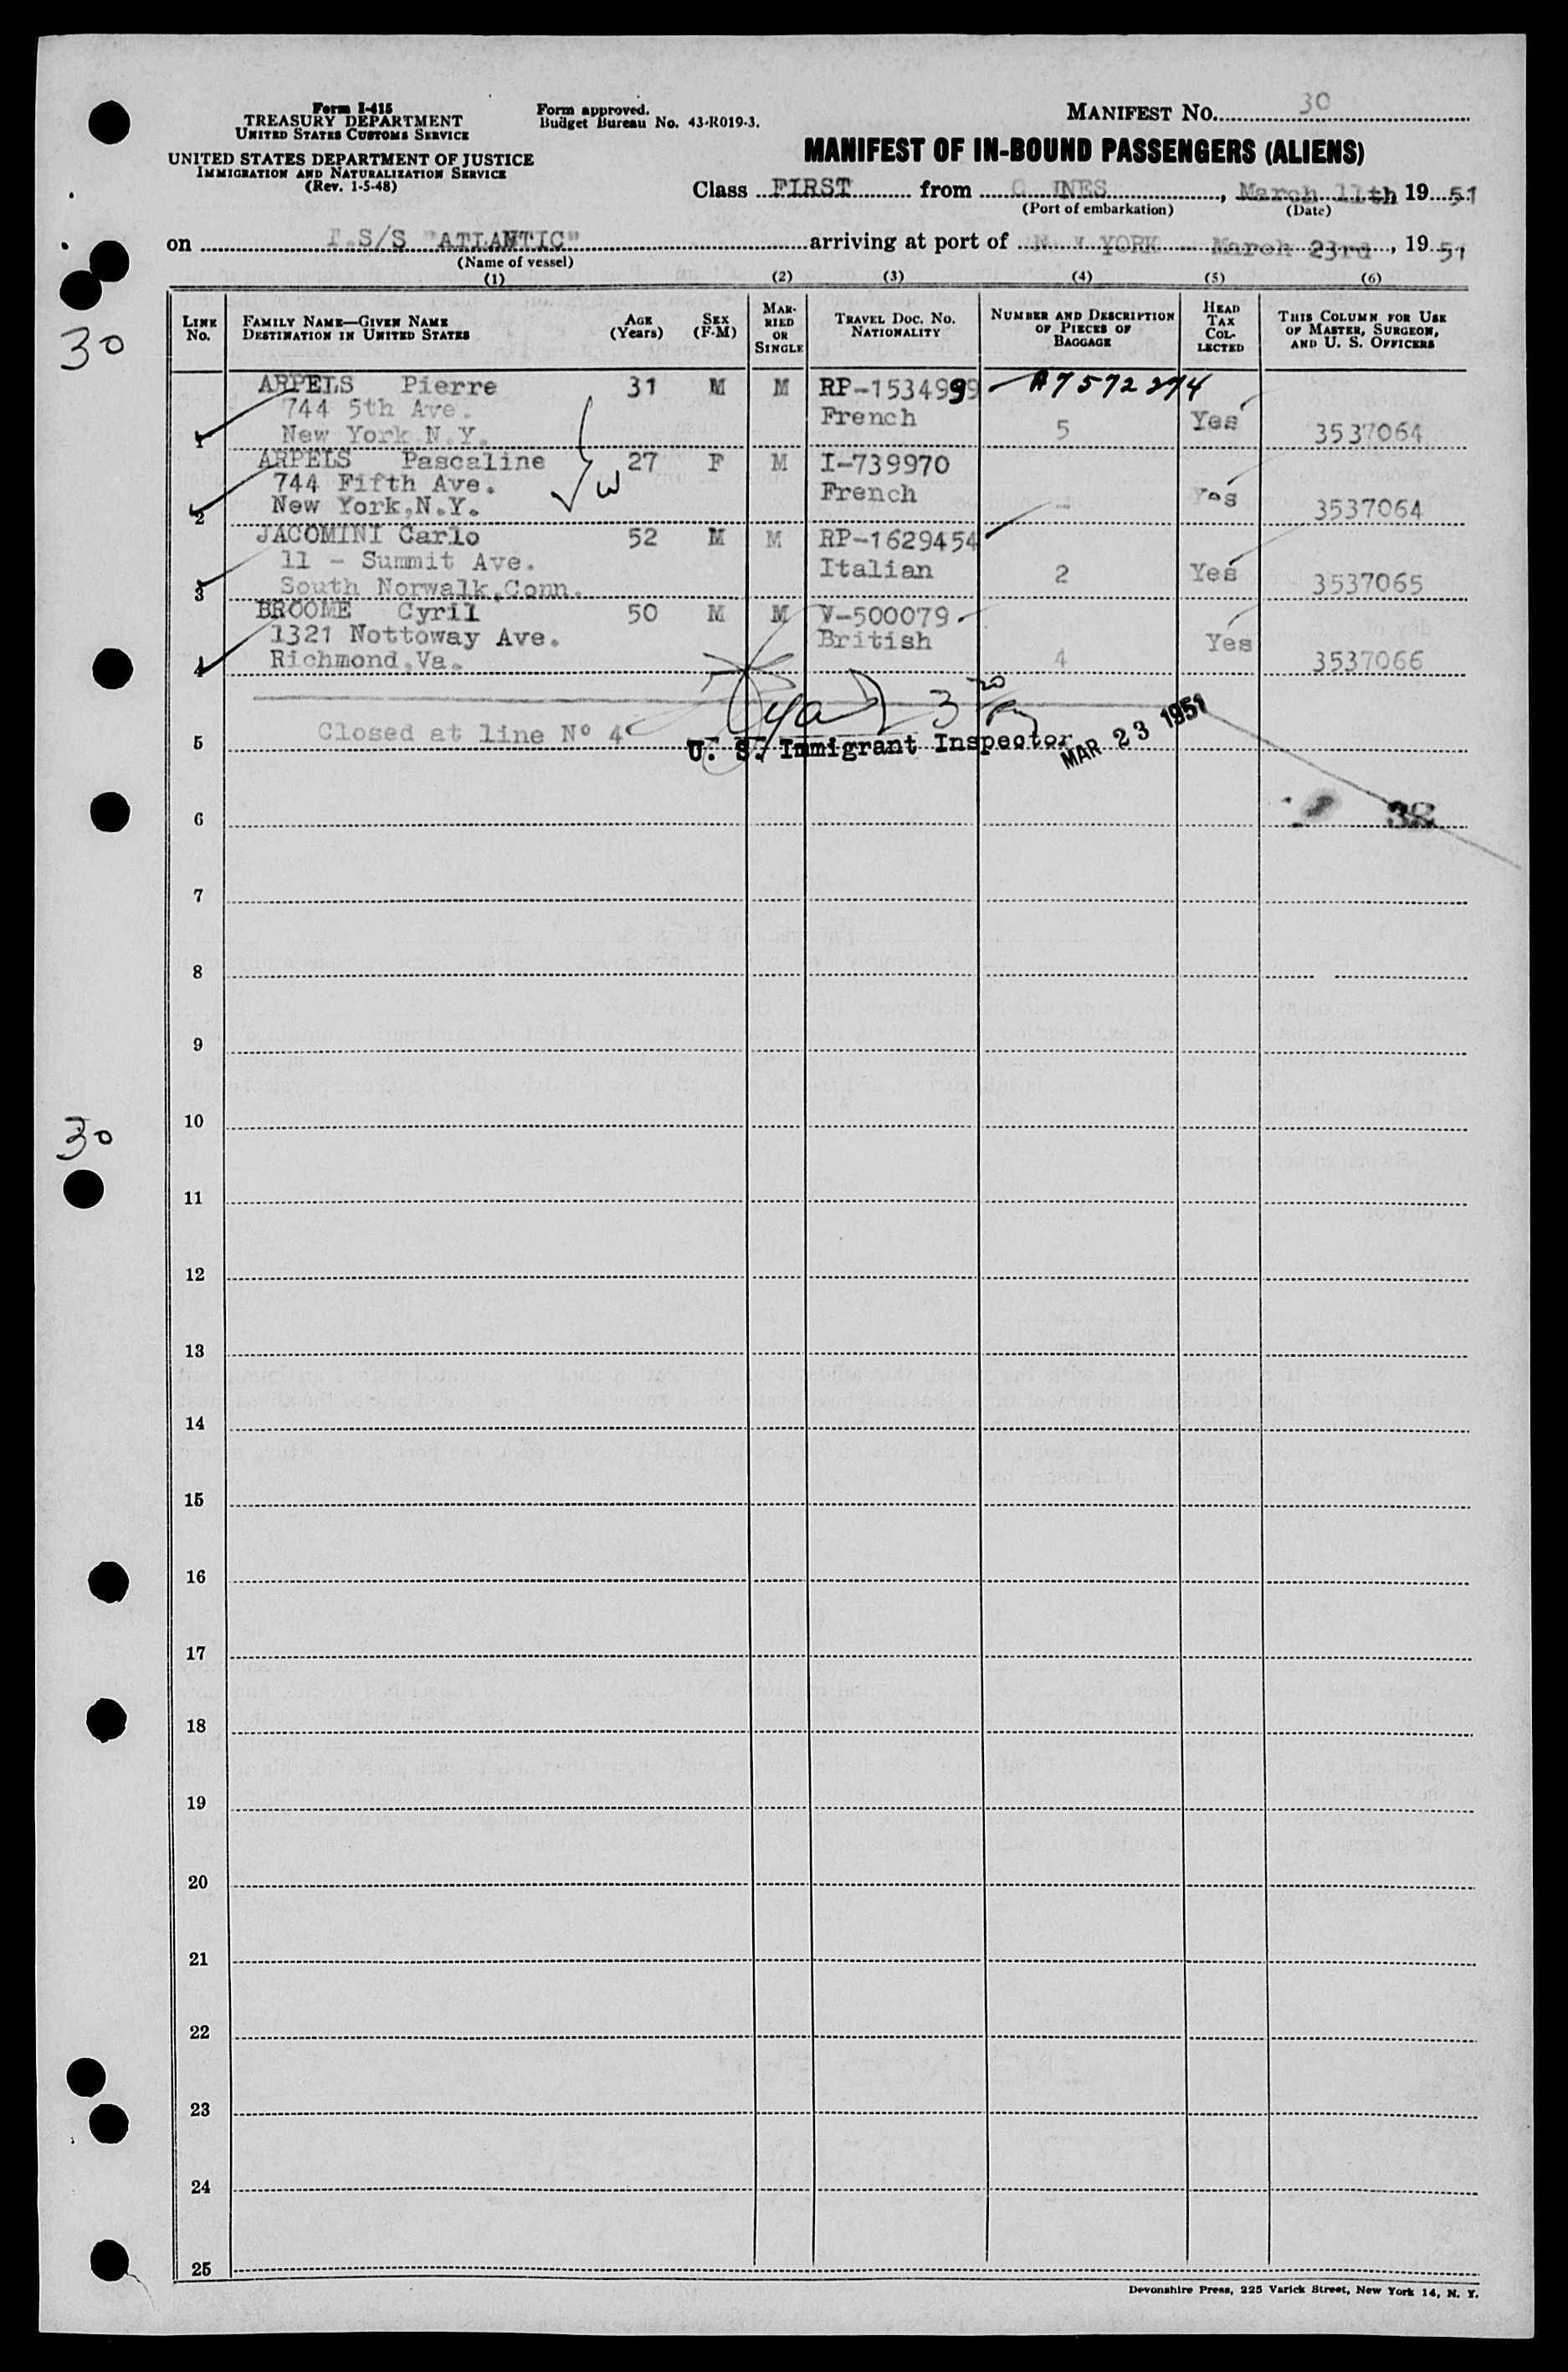 Form I-415
TREASURY DEPARTMENT
UNITED STATES CUSTOMS SERVICE
UNITED STATES DEPARTMENT OF JUSTICE
IMMIGRATION AND NATURALIZATION SERVICE
(Rev. 1-5-48)
Form approved.
Budget Bureau No. 43-R019-3.
MANIFEST No. 30
MANIFEST OF IN-BOUND PASSENGERS (ALIENS)
Class FIRST from INES, March 11th 19 51
(Port of embarkation) (Date)
on S/S "ATLANTIC" arriving at port of YORK March 23rd, 19 51
(Name of vessel)
(1) (2) (3) (4) (5) (6)
LINE No. FAMILY NAME—GIVEN NAME DESTINATION IN UNITED STATES AGE (Years) SEX (F-M) MARRIED OR SINGLE TRAVEL DOC. NO. NATIONALITY NUMBER AND DESCRIPTION OF PIECES OF BAGGAGE HEAD TAX COLLECTED THIS COLUMN FOR USE OF MASTER, SURGEON, AND U. S. OFFICERS
30
ARPELS Pierre 31 M M RP-1534999 A7572274
744 5th Ave. French Yes
1 New York N.Y. 5 3537064
ARPELS Pascaline 27 F M I-739970
744 Fifth Ave. W French Yes
2 New York,N.Y. - 3537064
JACOMINI Carlo 52 M M RP-1629454
11 - Summit Ave. Italian 2 Yes
3 South Norwalk,Conn. 3537065
BROOME Cyril 50 M M V-500079
1321 Nottoway Ave. British Yes
4 Richmond,Va. 4 3537066
3 20
5 Closed at line Nº 4
U. S. Immigrant Inspector MAR 23 1951
6 38
7
8
9
10
30
11
12
13
14
15
16
17
18
19
20
21
22
23
24
25
Devonshire Press, 225 Varick Street, New York 14, N. Y.